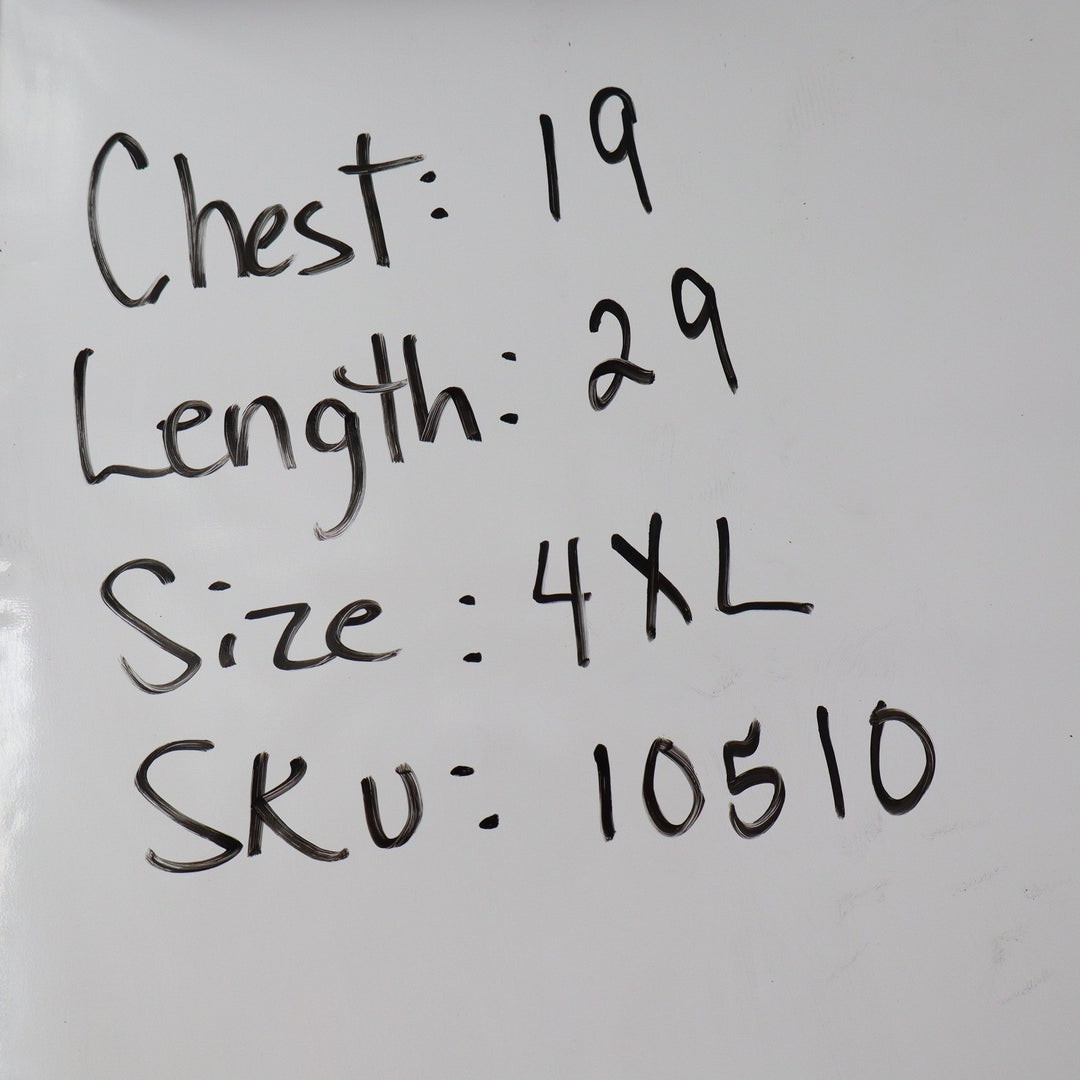 Chest: 19
Length: 29
Size: 4XL
SKU: 10510